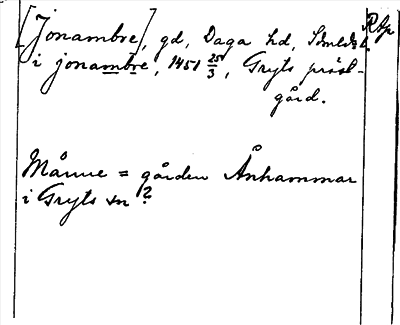 [Jonambre], gd, Daga hd, Sdmlds l. RAp
i jonambre, 1451 25/3, Gryts präst-
gård.
Månne = gården Ånhammar
i Gryts sn?